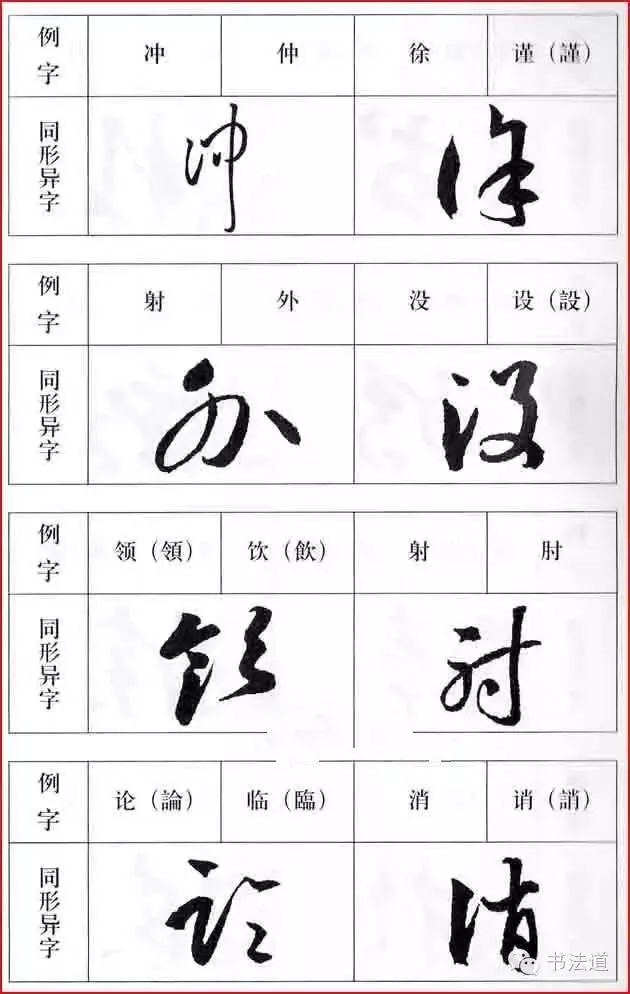 例字 冲 仲 徐 谨（謹）
同形异字
例字 射 外 没 设（設）
同形异字
例字 领（領） 饮（飲） 射 肘
同形异字
例字 论（論） 临（臨） 消 诮（誚）
同形异字
书法道